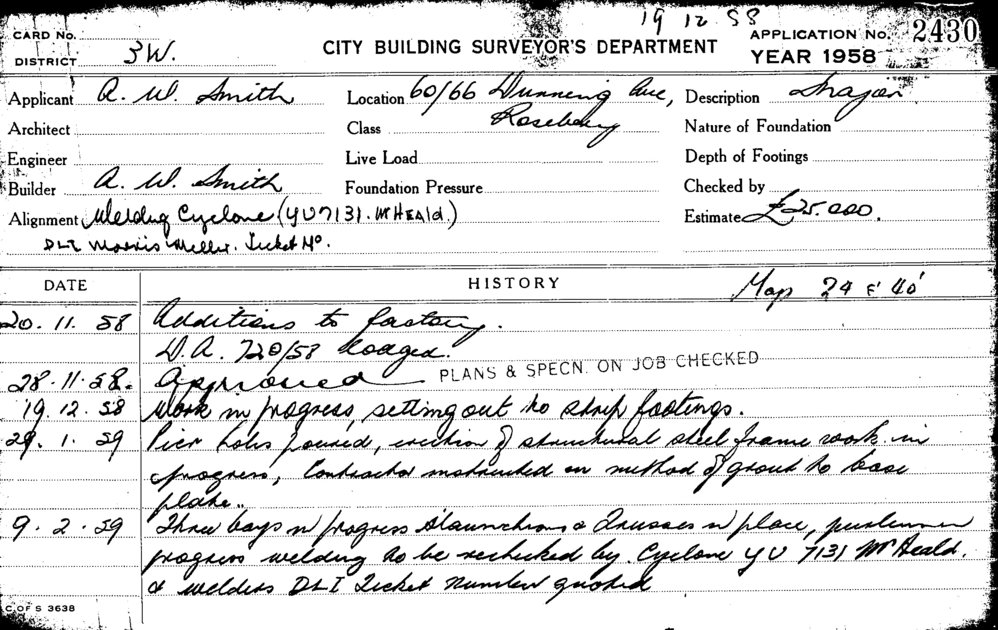 19 12 58
CARD No.
DISTRICT 3W.
CITY BUILDING SURVEYOR'S DEPARTMENT
APPLICATION No. 2430
YEAR 1958
Applicant A. W. Smith
Location 60/66 Dunning Ave,
Rosebery
Description
Architect
Class
Nature of Foundation
Engineer
Live Load
Depth of Footings
Builder A. W. Smith
Foundation Pressure
Checked by
Alignment Welding Cyclone (YU7131. Mr HEAld.)
Estimate £25.000.
DLI Morris Miller. Ticket No.
DATE HISTORY Map 24 E' 40'
20. 11. 58 Additions to factory.
D.A. 720/58 lodged.
28. 11. 58. Approved PLANS & SPECN. ON JOB CHECKED
19. 12. 58 Work in progress, setting out to strip footings.
29. 1. 59 Pier holes poured, erection of structural steel frame work in
progress, Contractor instructed on method of grout to base
plate..
9. 2. 59 Three bays in progress Staunchions & Trusses in place, purlins in
progress welding to be rechecked by Cyclone YU 7131 Mr Heald.
& welders DLI Ticket number quoted
C OF S 3638